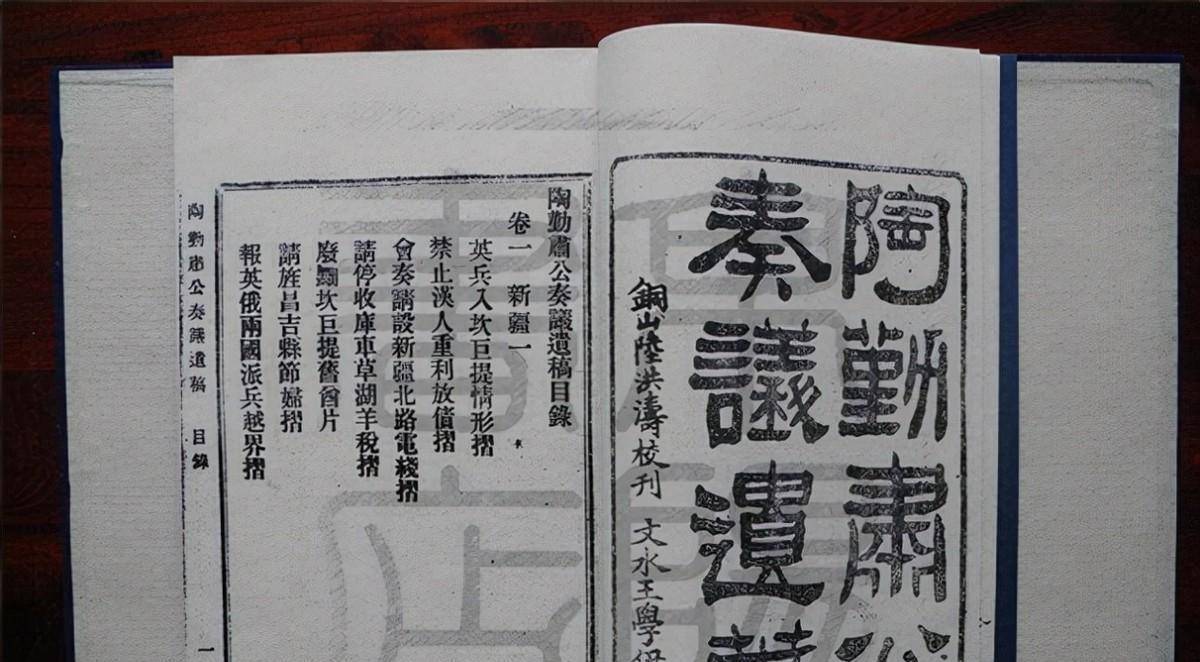 陶勤肅公
奏議遺
銅山陸洪濤校刊 文水王學
陶勤肅公奏議遺稿目錄
卷一 新疆一
英兵入坎巨提情形摺
禁止漢人重利放債摺
會奏請設新疆北路電綫摺
請停收庫車草湖羊稅摺
廢㔢坎巨提舊酋片
請旌昌吉縣節婦摺
報英俄兩國派兵越界摺
陶勤肅公奏議遺稿 目錄 一